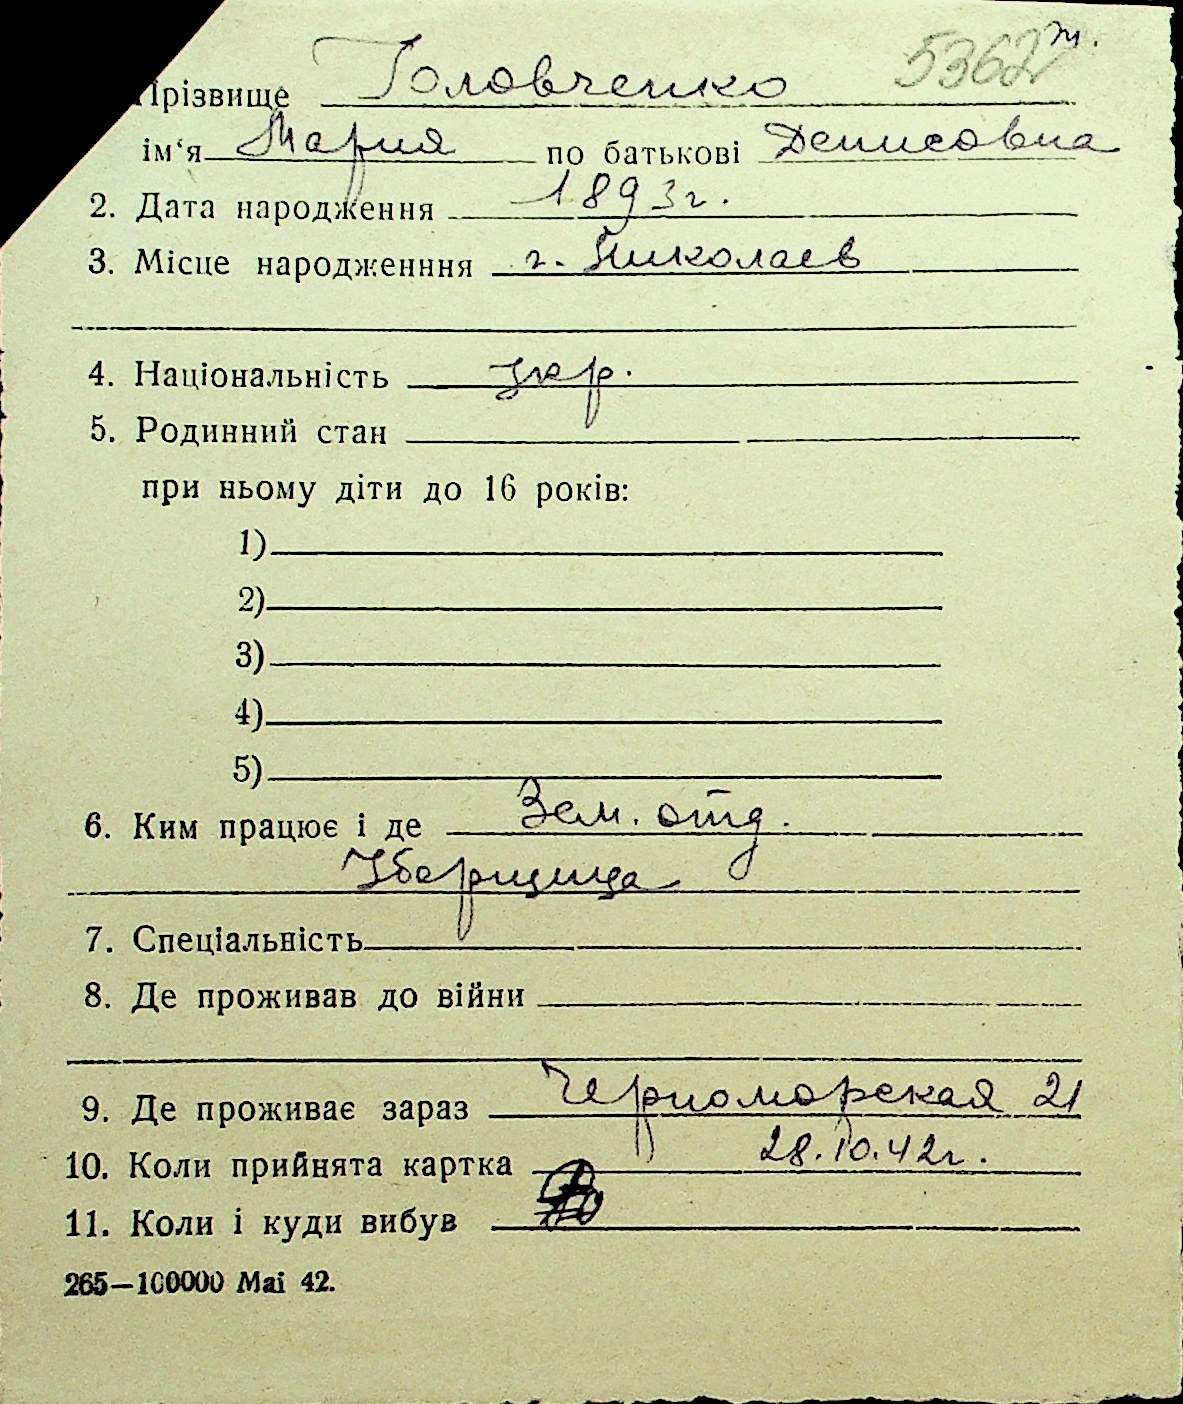 5362 т.
Прізвище Головченко
ім‘я Мария по батькові Денисовна
2. Дата народження 1893г.
3. Місце народженння г. Николаев
4. Національність укр.
5. Родинний стан
при ньому діти до 16 років:
1)
2)
3)
4)
5)
6. Ким працює і де Зем. отд.
Уборщица
7. Спеціальність
8. Де проживав до війни
9. Де проживає зараз Черноморская 21
10. Коли прийнята картка 28.10.42г.
11. Коли і куди вибув
265—100000 Mai 42.